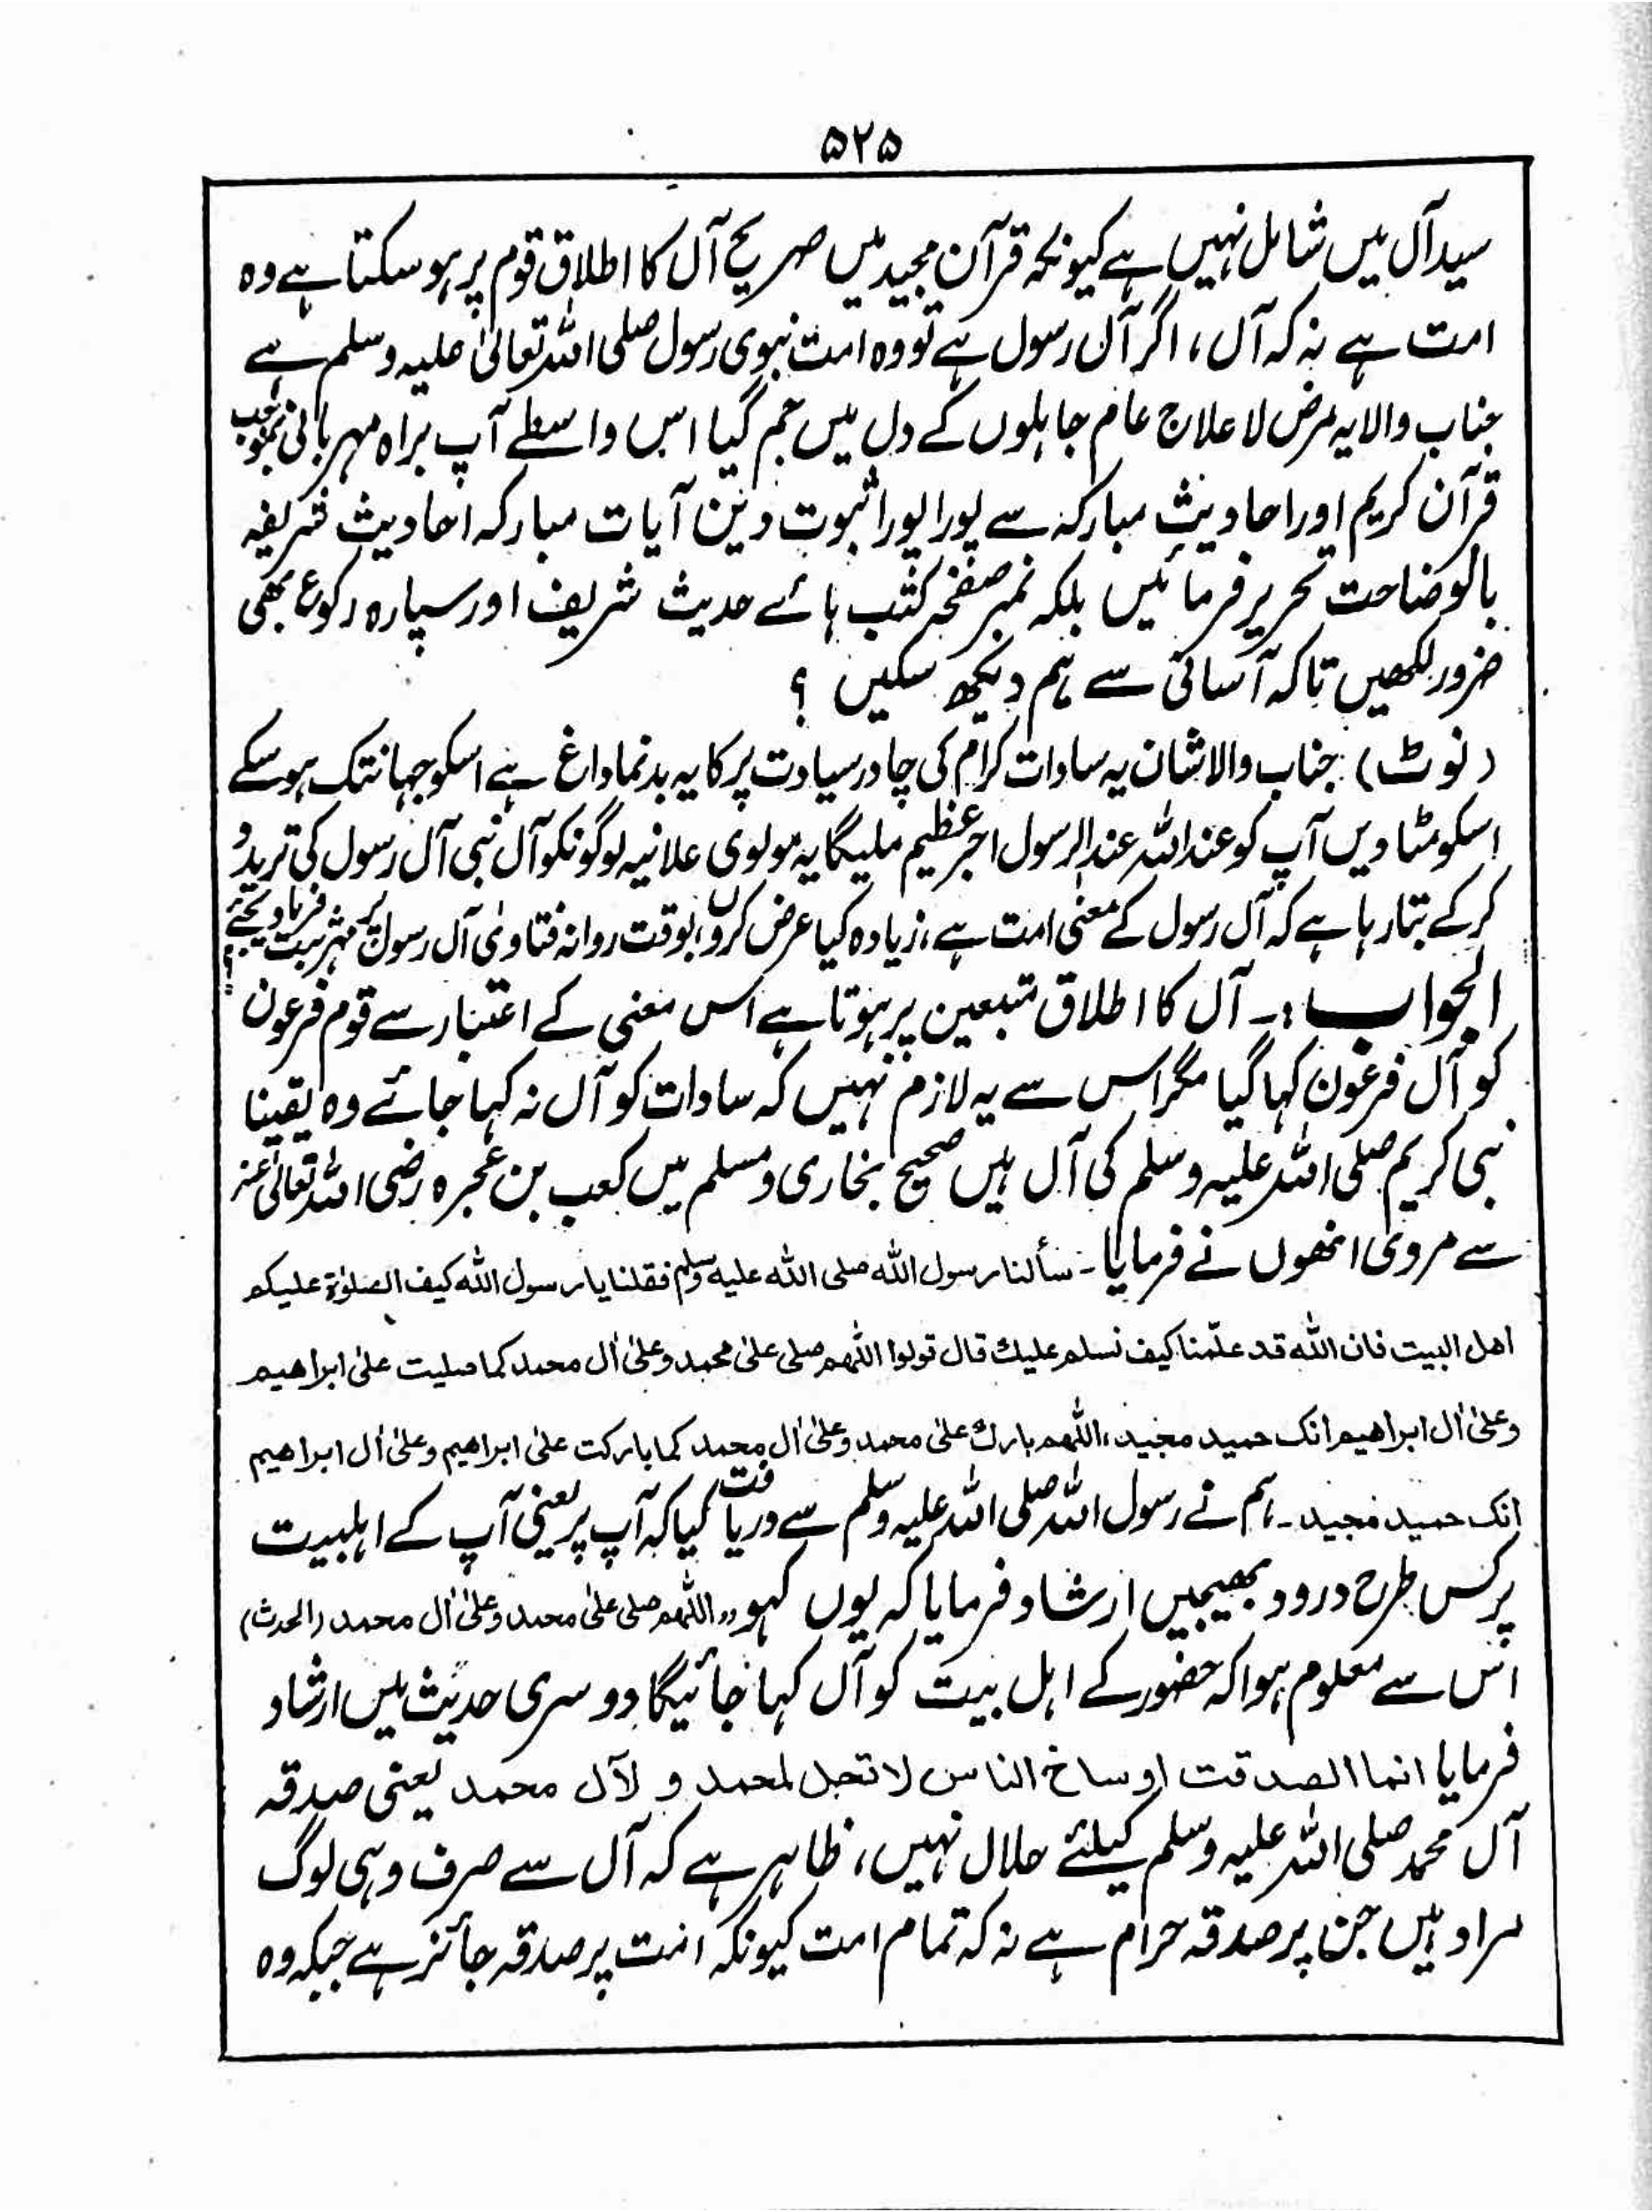 ۵۲۵
سید آل میں شامل نہیں ہے کیونکہ قرآن مجید میں صریح آل کا اطلاق قوم پر ہو سکتا ہے وہ
امت ہے نہ کہ آل، اگر آل رسول ہے تو وہ امت نبوی رسول صلی اللہ تعالیٰ علیہ وسلم ہے
جناب والا یہ مرض لا علاج عام جاہلوں کے دل میں جم گیا اس واسطے آپ براہ مہربانی بموجب
قرآن کریم اور احادیث مبارکہ سے پورا پورا ثبوت دیں آیات مبارکہ احادیث شریفہ
بالوضاحت تحریر فرمائیں بلکہ نمبر صفحہ کتب ہائے حدیث شریف اور سپارہ رکوع بھی
ضرور لکھیں تاکہ آسانی سے ہم دیکھ سکیں ؟
(نوٹ) جناب والا شان یہ سادات کرام کی چادر سیادت پر کا یہ بدنما داغ ہے اسکو جہانتک ہو سکے
اسکو مٹا دیں آپ کو عند اللہ عند الرسول اجر عظیم ملیگا یہ مولوی علانیہ لوگونکو آل نبی آل رسول کی تردید
کر کے بتا رہا ہے کہ آل رسول کے معنی امت ہے، زیادہ کیا عرض کروں، بوقت روانہ فتاویٰ آل رسول پر مہر ثبت فرما دیجئے؟
الجواب :۔ آل کا اطلاق متبعین پر ہوتا ہے اس معنی کے اعتبار سے قوم فرعون
کو آل فرعون کہا گیا مگر اس سے یہ لازم نہیں کہ سادات کو آل نہ کہا جائے وہ یقینا
نبی کریم صلی اللہ علیہ وسلم کی آل ہیں صحیح بخاری و مسلم میں کعب بن عجرہ رضی اللہ تعالیٰ عنہ
سے مروی انھوں نے فرمایا۔ سألنا رسول الله صلی الله علیه وسلم فقلنا یا رسول الله کیف الصلوٰة علیکم
اهل البیت فان الله قد علّمنا کیف نسلم علیك قال قولوا اللّٰهم صلی علیٰ محمد وعلیٰ اٰل محمد کما صلیت علیٰ ابراهیم
وعلیٰ اٰل ابراهیم انک حمید مجید، اللّٰهم بارك علیٰ محمد وعلیٰ اٰل محمد کما بارکت علیٰ ابراهیم وعلیٰ اٰل ابراهیم
انک حمید مجید۔ ہم نے رسول اللہ صلی اللہ علیہ وسلم سے دریافت کیا کہ آپ پر یعنی آپ کے اہلبیت
پر کس طرح درود بھیجیں ارشاد فرمایا کہ یوں کہو ،،اللّٰهم صلی علیٰ محمد وعلیٰ اٰل محمد (الحدث)
اس سے معلوم ہوا کہ حضور کے اہل بیت کو آل کہا جائیگا دوسری حدیث میں ارشاد
فرمایا انما الصدقت اوساخ الناس لا تحل لمحمد و لآل محمد یعنی صدقہ
آل محمد صلی اللہ علیہ وسلم کیلئے حلال نہیں، ظاہر ہے کہ آل سے صرف وہی لوگ
مراد ہیں جن پر صدقہ حرام ہے نہ کہ تمام امت کیونکہ امت پر صدقہ جائز ہے جبکہ وہ